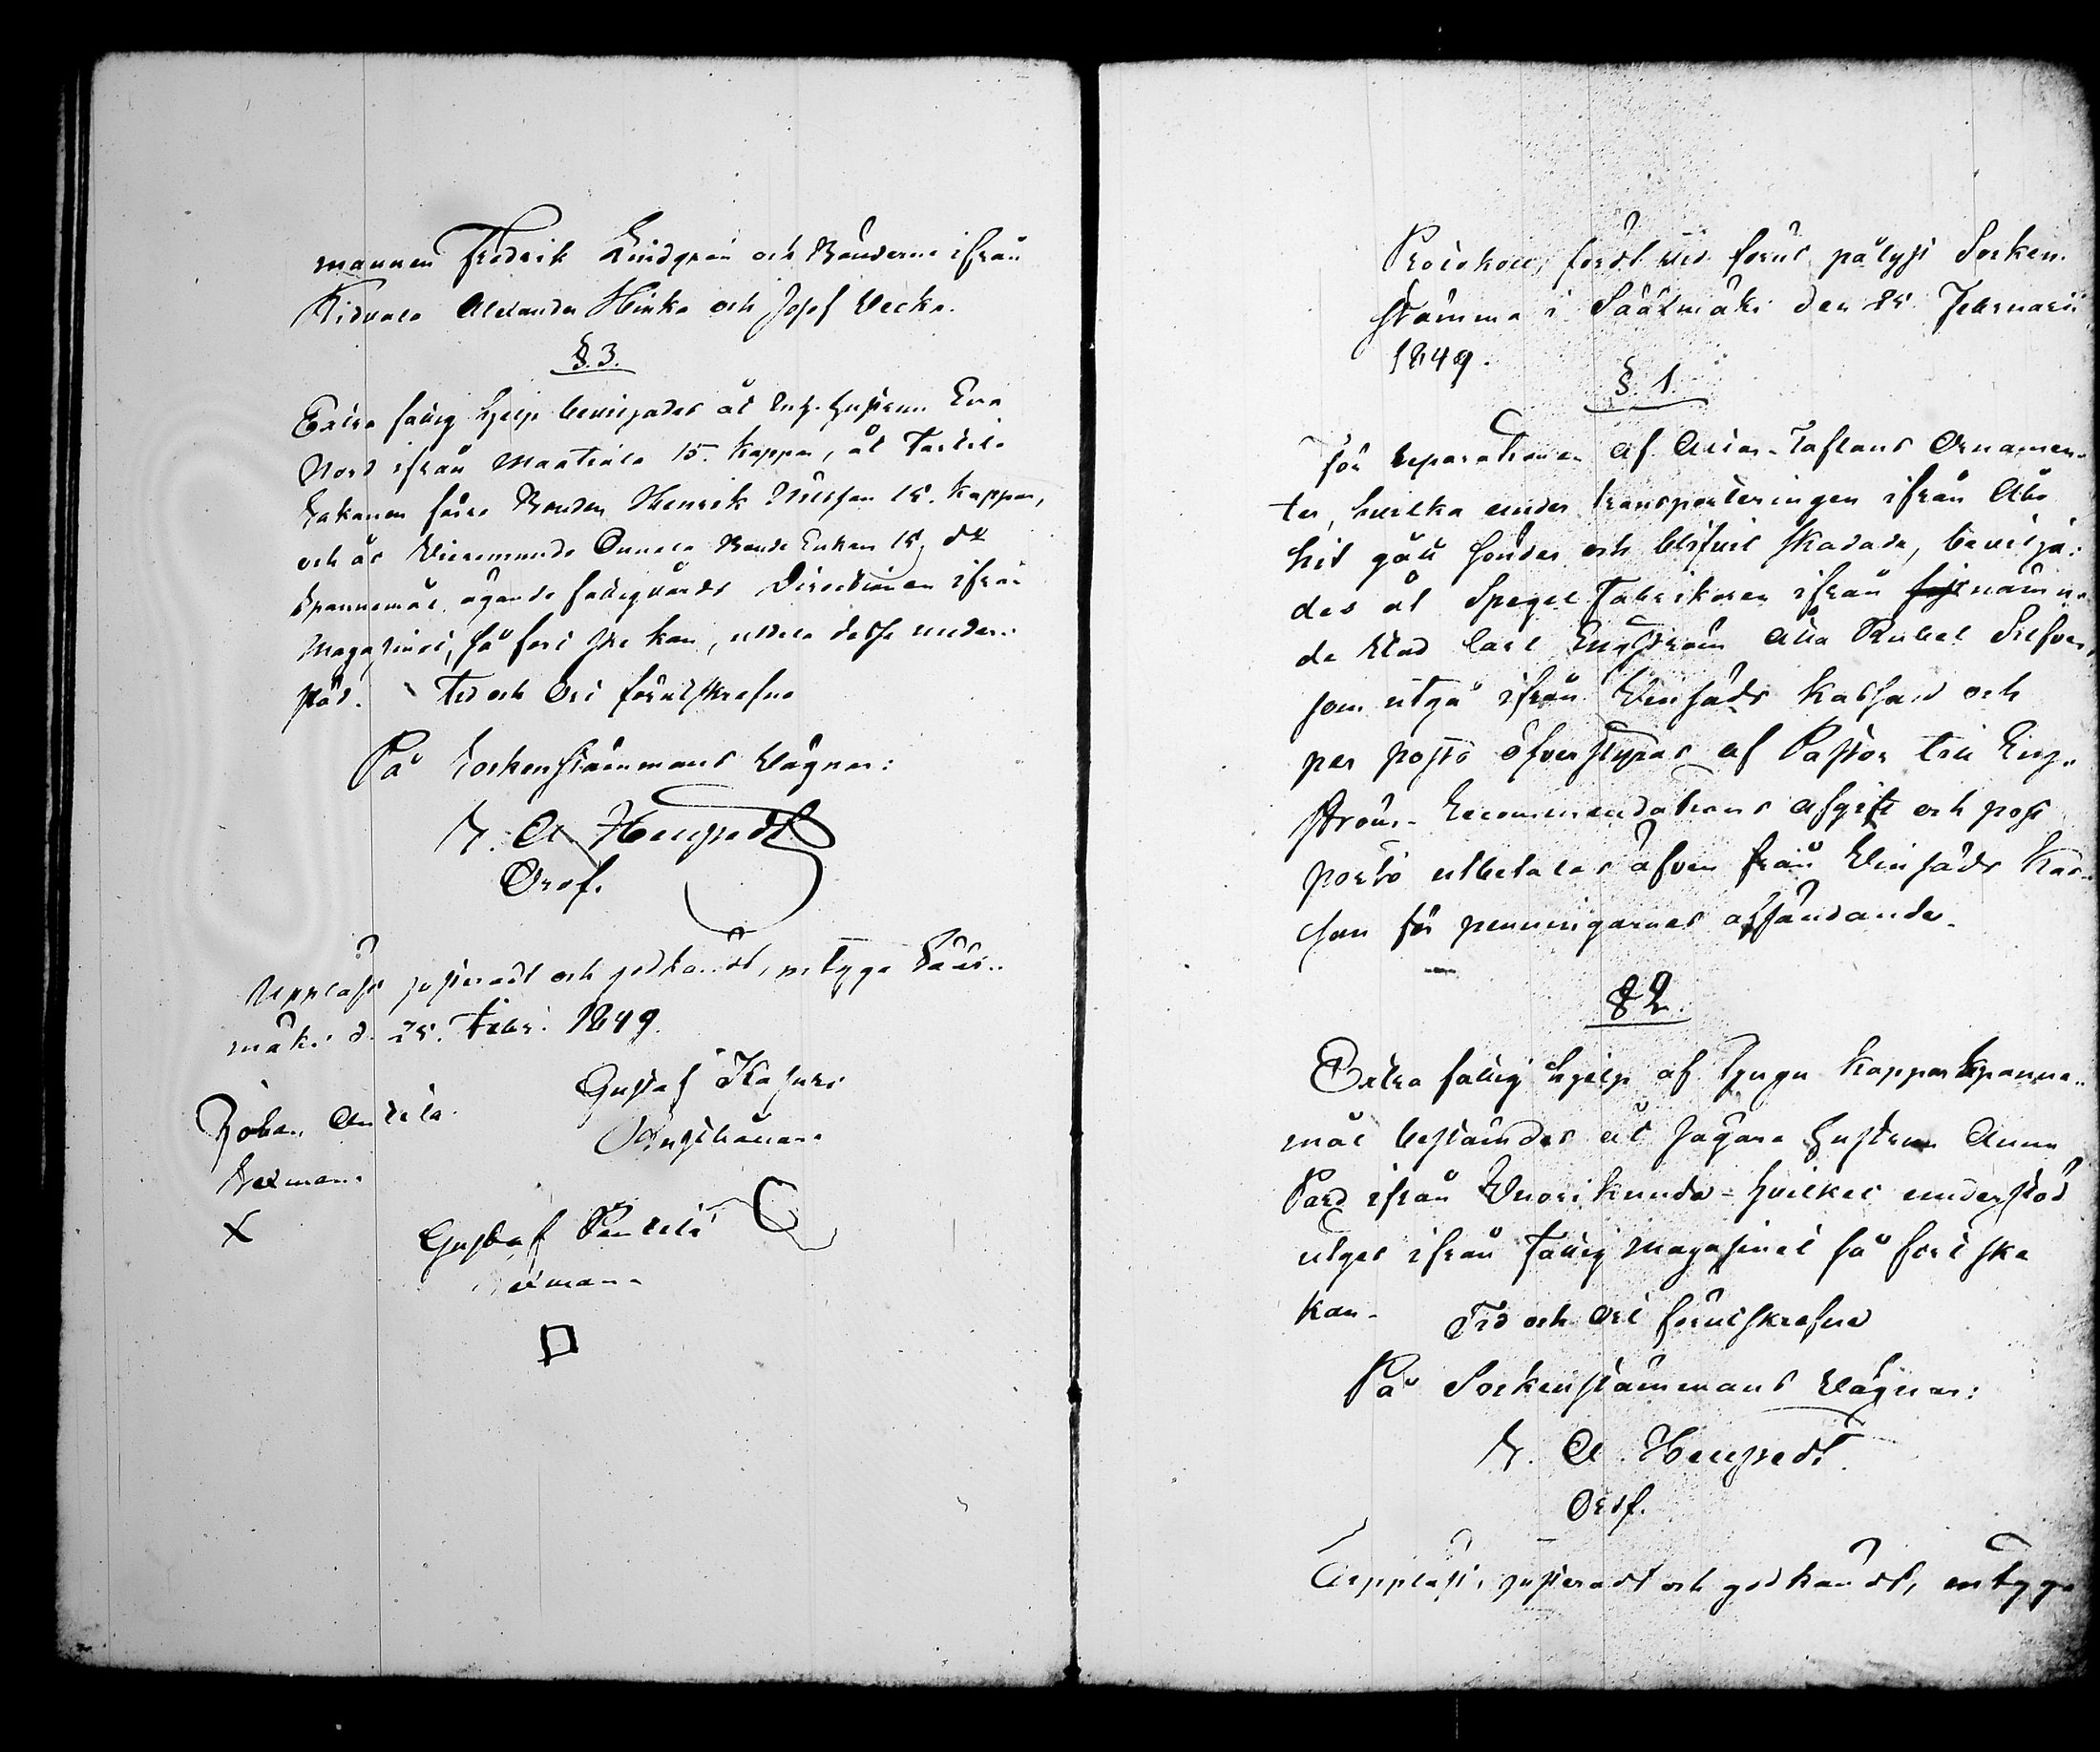 mannen Fredrik Lindgrén och Bönderne ifrån
Ridvala Alexander Hinka och Josef Wecka.
§ 3.
Extra fattig hjelp beviljades åt Inh. hustrun Eva
Nord ifrån Maatiala 15. kappar, åt Tarttila
Sakanen förre Bonden Henrik 15. kappar,
och åt Onnela Bonde Enkan 15 do
Spannemål, ägande fattigvårds Directionen ifrån
Magasinet, så fort ske kan, utdela detta under-
stöd. Tid och Ort förutskrefne
På Sockenstämmans vägnar:
A. Heurstedt
Ordf.
Uppläst, justeradt och godkändt, intyga Sääx-
mäki d. 25. Febr. 1849.
Johan Anttila
Sexman
X
Gustaf
Gustaf Penttilä
Sexman
Protokoll, fördt vid förut pålyst Socken-
stämma i Sääxmäki den 25 Februarii
1849.
§ 1
För reparationen af Altar-Taflans Ornamen-
ter, hvilka under transporteringen ifrån Åbo
hit gått sönder och blifvit skadade, bevilja-
des åt Spegel Fabrikören ifrån nämn-
de Stad Carl Engström åtta Rubel Silfver,
som utgå ifrån Vinsäds kassan och
per posto öfverstyras af Pastor till Eng-
ström. Recommendations afgift och post
porto utbetalas äfven från Vinsäds kas-
san för penningarnes afsändande.
§ 2.
Extra fattig hjelp af tjugu kappar spanne-
mål bestämdes åt Jägare hustrun Anna
Pard ifrån Wuorikunda - hvilket understöd
utges ifrån fattig Magasinet så fort ske
kan.
Tid och Ort förutskrefne
På Sockenstämmans vägnar:
A. Heurstedt
Ordf.
Uppläst, justeradt och godkändt, intyga